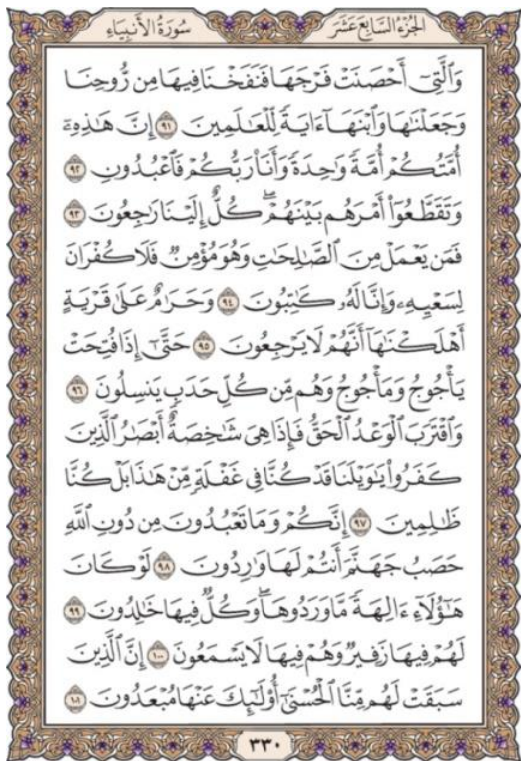 الجُزْءُ السَّابِعَ عَشَرَ سُورَةُ الأَنبِيَاءِ
وَٱلَّتِىٓ أَحْصَنَتْ فَرْجَهَا فَنَفَخْنَا فِيهَا مِن رُّوحِنَا
وَجَعَلْنَٰهَا وَٱبْنَهَآ ءَايَةً لِّلْعَٰلَمِينَ ٩١ إِنَّ هَٰذِهِۦٓ
أُمَّتُكُمْ أُمَّةً وَٰحِدَةً وَأَنَا۠ رَبُّكُمْ فَٱعْبُدُونِ ٩٢
وَتَقَطَّعُوٓا۟ أَمْرَهُم بَيْنَهُمْ ۖ كُلٌّ إِلَيْنَا رَٰجِعُونَ ٩٣
فَمَن يَعْمَلْ مِنَ ٱلصَّٰلِحَٰتِ وَهُوَ مُؤْمِنٌ فَلَا كُفْرَانَ
لِسَعْيِهِۦ وَإِنَّا لَهُۥ كَٰتِبُونَ ٩٤ وَحَرَٰمٌ عَلَىٰ قَرْيَةٍ
أَهْلَكْنَٰهَآ أَنَّهُمْ لَا يَرْجِعُونَ ٩٥ حَتَّىٰٓ إِذَا فُتِحَتْ
يَأْجُوجُ وَمَأْجُوجُ وَهُم مِّن كُلِّ حَدَبٍ يَنسِلُونَ ٩٦
وَٱقْتَرَبَ ٱلْوَعْدُ ٱلْحَقُّ فَإِذَا هِىَ شَٰخِصَةٌ أَبْصَٰرُ ٱلَّذِينَ
كَفَرُوا۟ يَٰوَيْلَنَا قَدْ كُنَّا فِى غَفْلَةٍ مِّنْ هَٰذَا بَلْ كُنَّا
ظَٰلِمِينَ ٩٧ إِنَّكُمْ وَمَا تَعْبُدُونَ مِن دُونِ ٱللَّهِ
حَصَبُ جَهَنَّمَ أَنتُمْ لَهَا وَٰرِدُونَ ٩٨ لَوْ كَانَ
هَٰٓؤُلَآءِ ءَالِهَةً مَّا وَرَدُوهَا ۖ وَكُلٌّ فِيهَا خَٰلِدُونَ ٩٩
لَهُمْ فِيهَا زَفِيرٌ وَهُمْ فِيهَا لَا يَسْمَعُونَ ١٠٠ إِنَّ ٱلَّذِينَ
سَبَقَتْ لَهُم مِّنَّا ٱلْحُسْنَىٰٓ أُو۟لَٰٓئِكَ عَنْهَا مُبْعَدُونَ ١٠١
٣٣٠